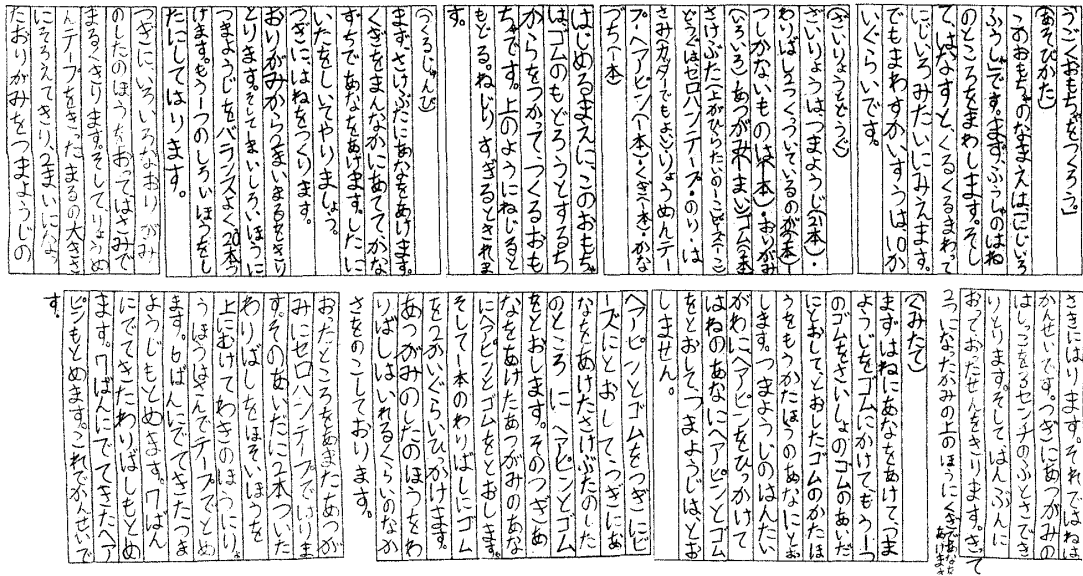 うごくおもちゃをつくろう。
(あそびかた)
このおもちゃのなまえは「にじいろ
ふうしゃ」です。まず、ふうしゃのはね
のところをまわします。そし
て、はなすと、くるくるまわって
にじいろみたいにみえます。
でもまわすかいすうは、10か
いぐらいです。
(ざいりょうとどうぐ)
ざいりょうは、つまようじ(21本)・
わりばし(ふくろついているのが2本)(一
つしかないものは4本)・おりがみ
(いろいろ)・あつがみ(1まい)・ゴム(2本)・
さけぶた(上がひらたいの一こ)・ビーズ(一こ)
どうぐはセロハンテープ・のり・は
さみ(カッターでもよい)・りょうめんテー
プ・ヘアピン(一本)・くぎ(一本)・かな
づち(一本)
はじめるまえに、このおもちゃ
は、ゴムのもどろうとするち
からをつかって、つくるおも
ちゃです。上のようにねじると
もどる。ねじりすぎるときれま
す。
(つくるじゅんび)
まず、さけぶたにあなをあけます。
くぎをまんなかにあててかな
ずちであなをあけます。したに
いたをしいてやりましょう。
つぎにはねをつくります。
おりがみから2まいまるをきり
とります。そして1まいしろいほうに
つまようじをバランスよく、20本つ
けます。もう一つのしろいほうをし
たにしてはります。
つぎに、いろいろなおりがみ
のしたのほうをおってはさみで
まるくきります。そしてりょうめ
んテープをきったまるの大きさ
にそろえてきり、2まいになっ
たおりがみをつまようじの
さきにはります。それではねは
かんせいです。つぎにあつがみの
はしっこを2センチのふとさでき
りとります。そして、はんぶんに
おっておったせんをきります。きって
2つになったかみの上のほうにくぎであなを
あけます
(くみたて)
まず、はねにあなをあけて、つま
ようじをゴムにかけてもう一つ
のゴムをさいしょのゴムのあいだ
にとおして、とおしたゴムのかたほ
うをもうかたほうのあなにとお
します。つまようじのはんたい
がわにヘアピンをひっかけて
はねのあなにヘアピンとゴム
をとおして、つまようじはとお
しません。
ヘアピンとゴムをつぎにビ
ーズにとおして、つぎにあ
なをあけたさけぶたのした
のところにヘアピンとゴム
をとおします。そのつぎあ
なをあけたあつがみのあな
にヘアピンとゴムをとおします。
そして一本のわりばしにゴム
を2かいぐらいひっかけます。
あつがみのしたのほうをわ
りばしは、いれるくらいのなが
さをのこしております。
おったところをあまたあつが
みにセロハンテープでいりま
す。そのあいだに2本ついた
わりばしをほそいほうを
上にむけてわきのほうにり、
うほうはさんでテープでとめ
ます。6ばんにでてきたつま
ようじもとめます。7ばん
にでてきたわりばしもとめ
ます。7ばんにでてきたヘア
ピンもとめます。これでかんせいで
す。